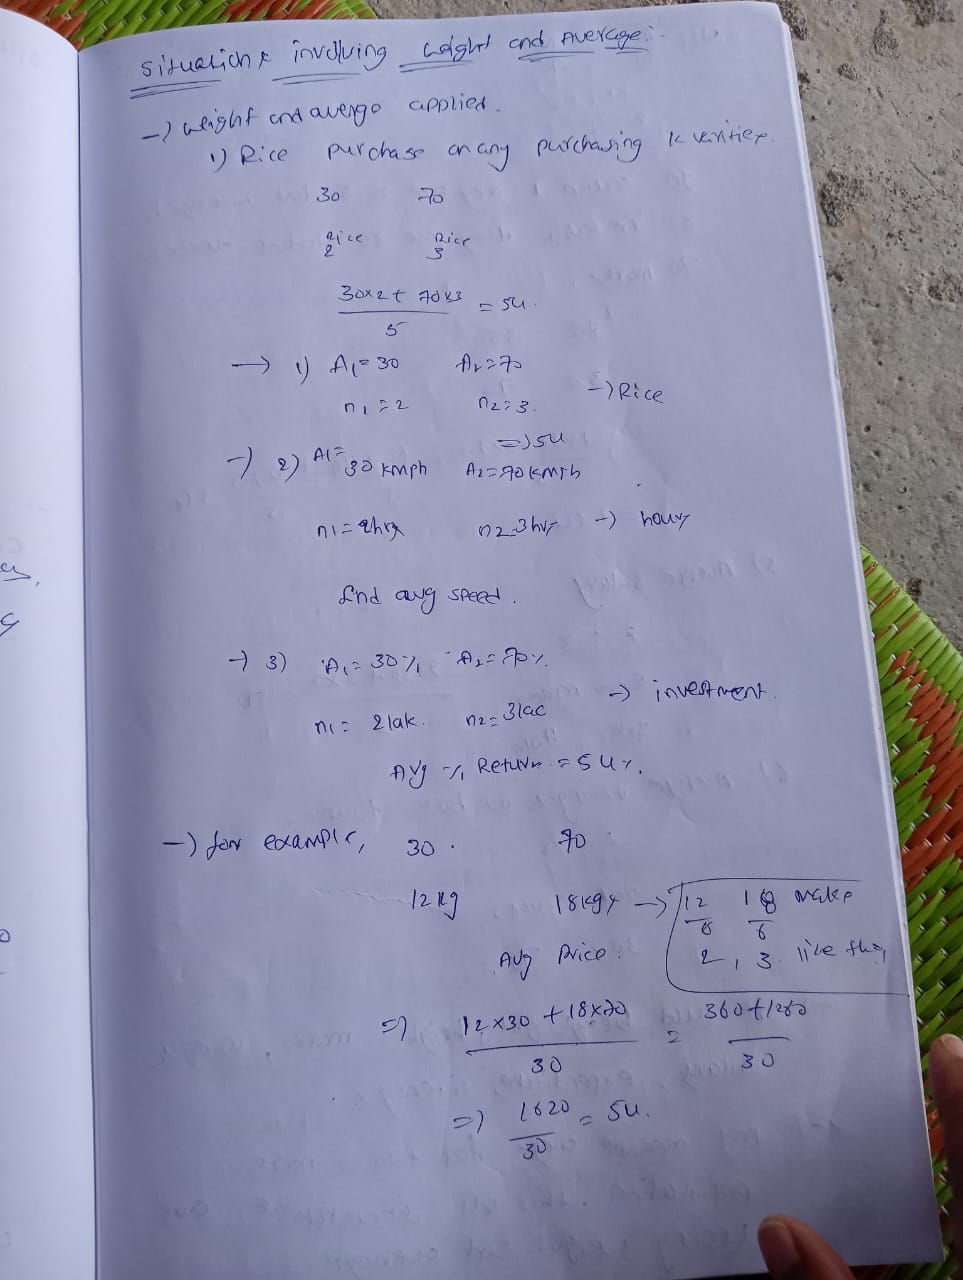 situations involving weight and Average:-
-> weight and avergo applied.
1) Rice purchase on any purchasing k verities.
30 70
Rice Rice
2 3
30x2+70x3 = 54.
5
-> 1) A1=30 A2=70
n1=2 n2=3. -> Rice
=> 54
-> 2) A1= 30 kmph A2=70kmph
n1=2hrs n2=3hrs -> hours
find avg speed.
-> 3) A1= 30% A2=70%.
-> investment.
n1= 2lak. n2=3lac
Avg % Return.=54%.
-> for example, 30. 70
12kg 18kgs -> 12 18 make
6 6
Avg price. 2, 3. like this
=> 12x30+18x70 = 360+1260
30 30
=> 1620 = 54.
30